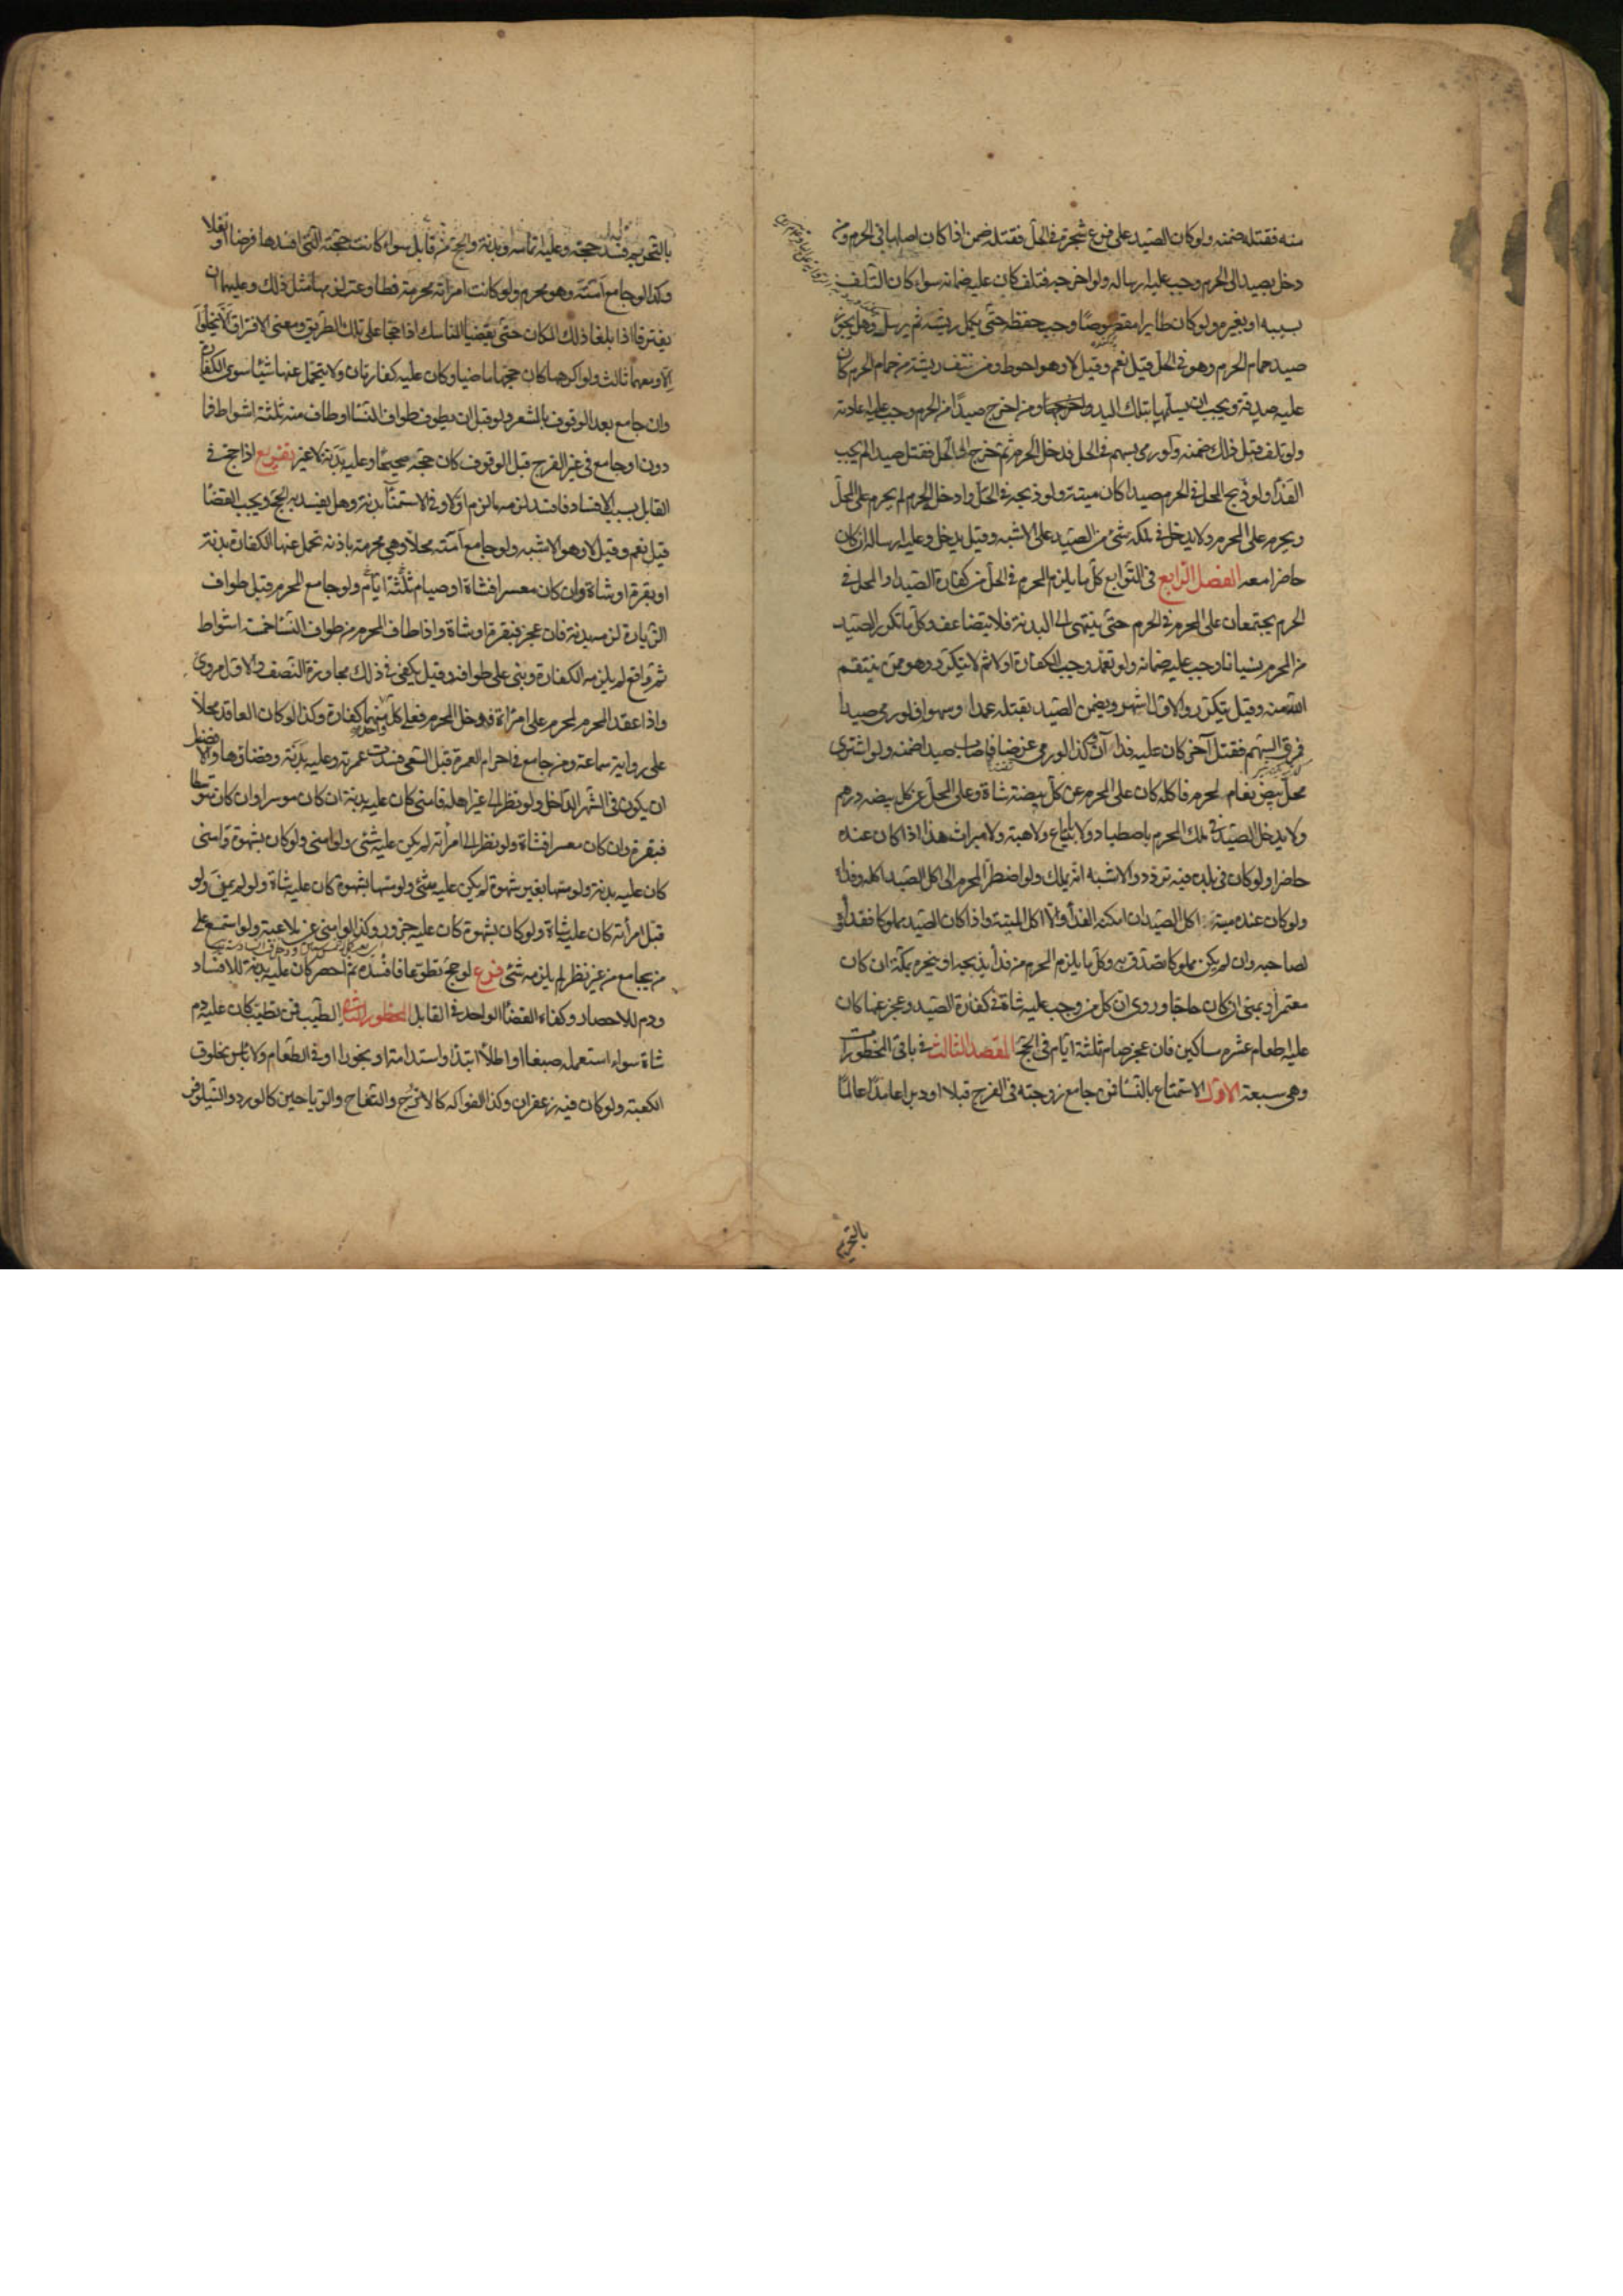 منه فقتله ضمنه ولو كان الصيد على فرع شجرة في الحل فقتله ضمن اذا كان اصلها في الحرم ومن
دخل بصيد الى الحرم وجب عليه ارساله ولو اخرجه فتلف كان عليه ضمانه سواء كان التلف
بسببه او بغيره ولو كان طايرا مقصوصا وجب حفظه حتى يكمل ريشه ثم يرسله وهل يجوز
صيد حمام الحرم وهو في الحل قيل نعم وقيل لا وهو احوط ومن نتف ريشة من حمام الحرم كان
عليه صدقة ويجب ان يسلمها بتلك اليد ومن اخرج صيدا من الحرم وجب عليه اعادته
ولو تلف قبل ذلك ضمنه ولو رمى بسهم في الحل فدخل الحرم ثم خرج الى الحل فقتل صيدا لم يجب
الفداء ولو ذبح المحل في الحرم صيدا كان ميتة ولو ذبحه في الحل وادخل الحرم لم يحرم على المحل
ويحرم على المحرم ولا يدخل في ملكه شئ من الصيد على الاشبه وقيل يدخل وعليه ارساله ان كان
حاضرا معه الفصل الرابع في التوابع كل ما يلزم المحرم في الحل من كفارة الصيد او المحل في
الحرم يجتمعان على المحرم في الحرم حتى ينتهى الى البدنة فلا يتضاعف وكل ما تكرر الصيد
من المحرم نسيانا وجب عليه ضمانه ولو تعمد وجب الكفارة اولا ثم لا يتكرر وهو ممن ينتقم
الله منه وقيل يتكرر والاول اشهر ويضمن الصيد بقتله عمدا وسهوا فلو رمى صيدا
فمرق السهم فقتل آخر كان عليه فداآن وكذا لو رمى غرضا فاصاب صيدا ضمنه ولو اشترى
محل بيض نعام لمحرم فاكله كان على المحرم عن كل بيضة شاة وعلى المحل عن كل بيضه درهم
ولا يدخل الصيد في ملك المحرم باصطياد ولا بابتياع ولا هبة ولا ميراث هذا اذا كان عنده
حاضرا ولو كان في بلده فيه تردد والاشبه انه يملك ولو اضطر المحرم الى اكل الصيد اكله وفداه
ولو كان عنده ميتة اكل الصيد ان امكنه الفداء والا اكل الميتة واذا كان الصيد مملوكا ففداؤه
لصاحبه وان لم يكن مملوكا تصدق به وكل ما يلزم المحرم من فداء يذبحه او ينحره بمكة ان كان
معتمرا وبمنى ان كان حاجا وروى ان كل من وجب عليه شاة في كفارة الصيد وعجز عنها كان
عليه اطعام عشرة مساكين فان عجز صام ثلثة ايام في الحج المقصد الثالث في باقي المحظورات
وهي سبعة الاول الاستمتاع بالنساء فمن جامع زوجته في الفرج قبلا او دبرا عامدا عالما
بالتحريم
بالتحريم فسد حجه وعليه اتمامه وبدنة والحج من قابل سواء كانت حجته التي افسدها فرضا او نفلا
وكذا لو جامع امته وهو محرم ولو كانت امراته محرمة مطاوعة لزمها مثل ذلك وعليهما ان
يفترقا اذا بلغا ذلك المكان حتى يقضيا المناسك اذا حجا على تلك الطريق ومعنى الافتراق الا يخلوا
الا ومعهما ثالث ولو اكرهها كان حجها ماضيا وكان عليه كفارتان ولا يتحمل عنها شيئا سوى الكفارة
وان جامع بعد الوقوف بالمشعر ولو قبل ان يطوف طواف النساء او طاف منه ثلثة اشواط فما
دون او جامع في غير الفرج قبل الوقوف كان حجه صحيحا وعليه بدنة لا غير تفريع اذا حج في
القابل بسبب الافساد فافسد لزمه ما لزم اولا وفي الاستمناء بدنة وهل يفسد به الحج ويجب القضاء
قيل نعم وقيل لا وهو الاشبه ولو جامع امته محلا وهي محرمة باذنه تحمل عنها الكفارة بدنة
او بقرة او شاة وان كان معسرا فشاة او صيام ثلثة ايام ولو جامع المحرم قبل طواف
الزيارة لزمه بدنة فان عجز فبقرة او شاة واذا طاف المحرم من طواف النساء خمسة اشواط
ثم واقع لم يلزمه الكفارة وبنى على طوافه وقيل يكفي في ذلك مجاوزة النصف والاول مروى
واذا عقد المحرم لمحرم على امراة فدخل المحرم فعلى كل منهما كفارة وكذا لو كان العاقد محلا
على رواية سماعة ومن جامع في احرام العمرة قبل السعى فسدت عمرته وعليه بدنة وقضاؤها والافضل
ان يكون في الشهر الداخل ولو نظر الى غير اهله فامنى كان عليه بدنة ان كان موسرا وان كان متوسطا
فبقرة وان كان معسرا فشاة ولو نظر الى امرأته لم يكن عليه شئ ولو امنى ولو كان بشهوة وامنى
كان عليه بدنة ولو مسها بغير شهوة لم يكن عليه شئ ولو مسها بشهوة كان عليه شاة ولو لم يمن ولو
قبل امرأته كان عليه شاة ولو كان بشهوة كان عليه جزور وكذا لو امنى عن ملاعبة ولو استمع على
من يجامع من غير نظر لم يلزمه شئ فرع لو حج تطوعا فافسده ثم احصر كان عليه بدنة للافساد
ودم للاحصار وكفاه القضاء الواحد في القابل المحظور الثاني الطيب فمن تطيب كان عليه دم
شاة سواء استعمله صبغا او اطلاء ابتداء واستدامة او بخورا او في الطعام ولا باس بخلوق
الكعبة ولو كان فيه زعفران وكذا الفواكه كالاترج والتفاح والرياحين كالورد والنيلوفر